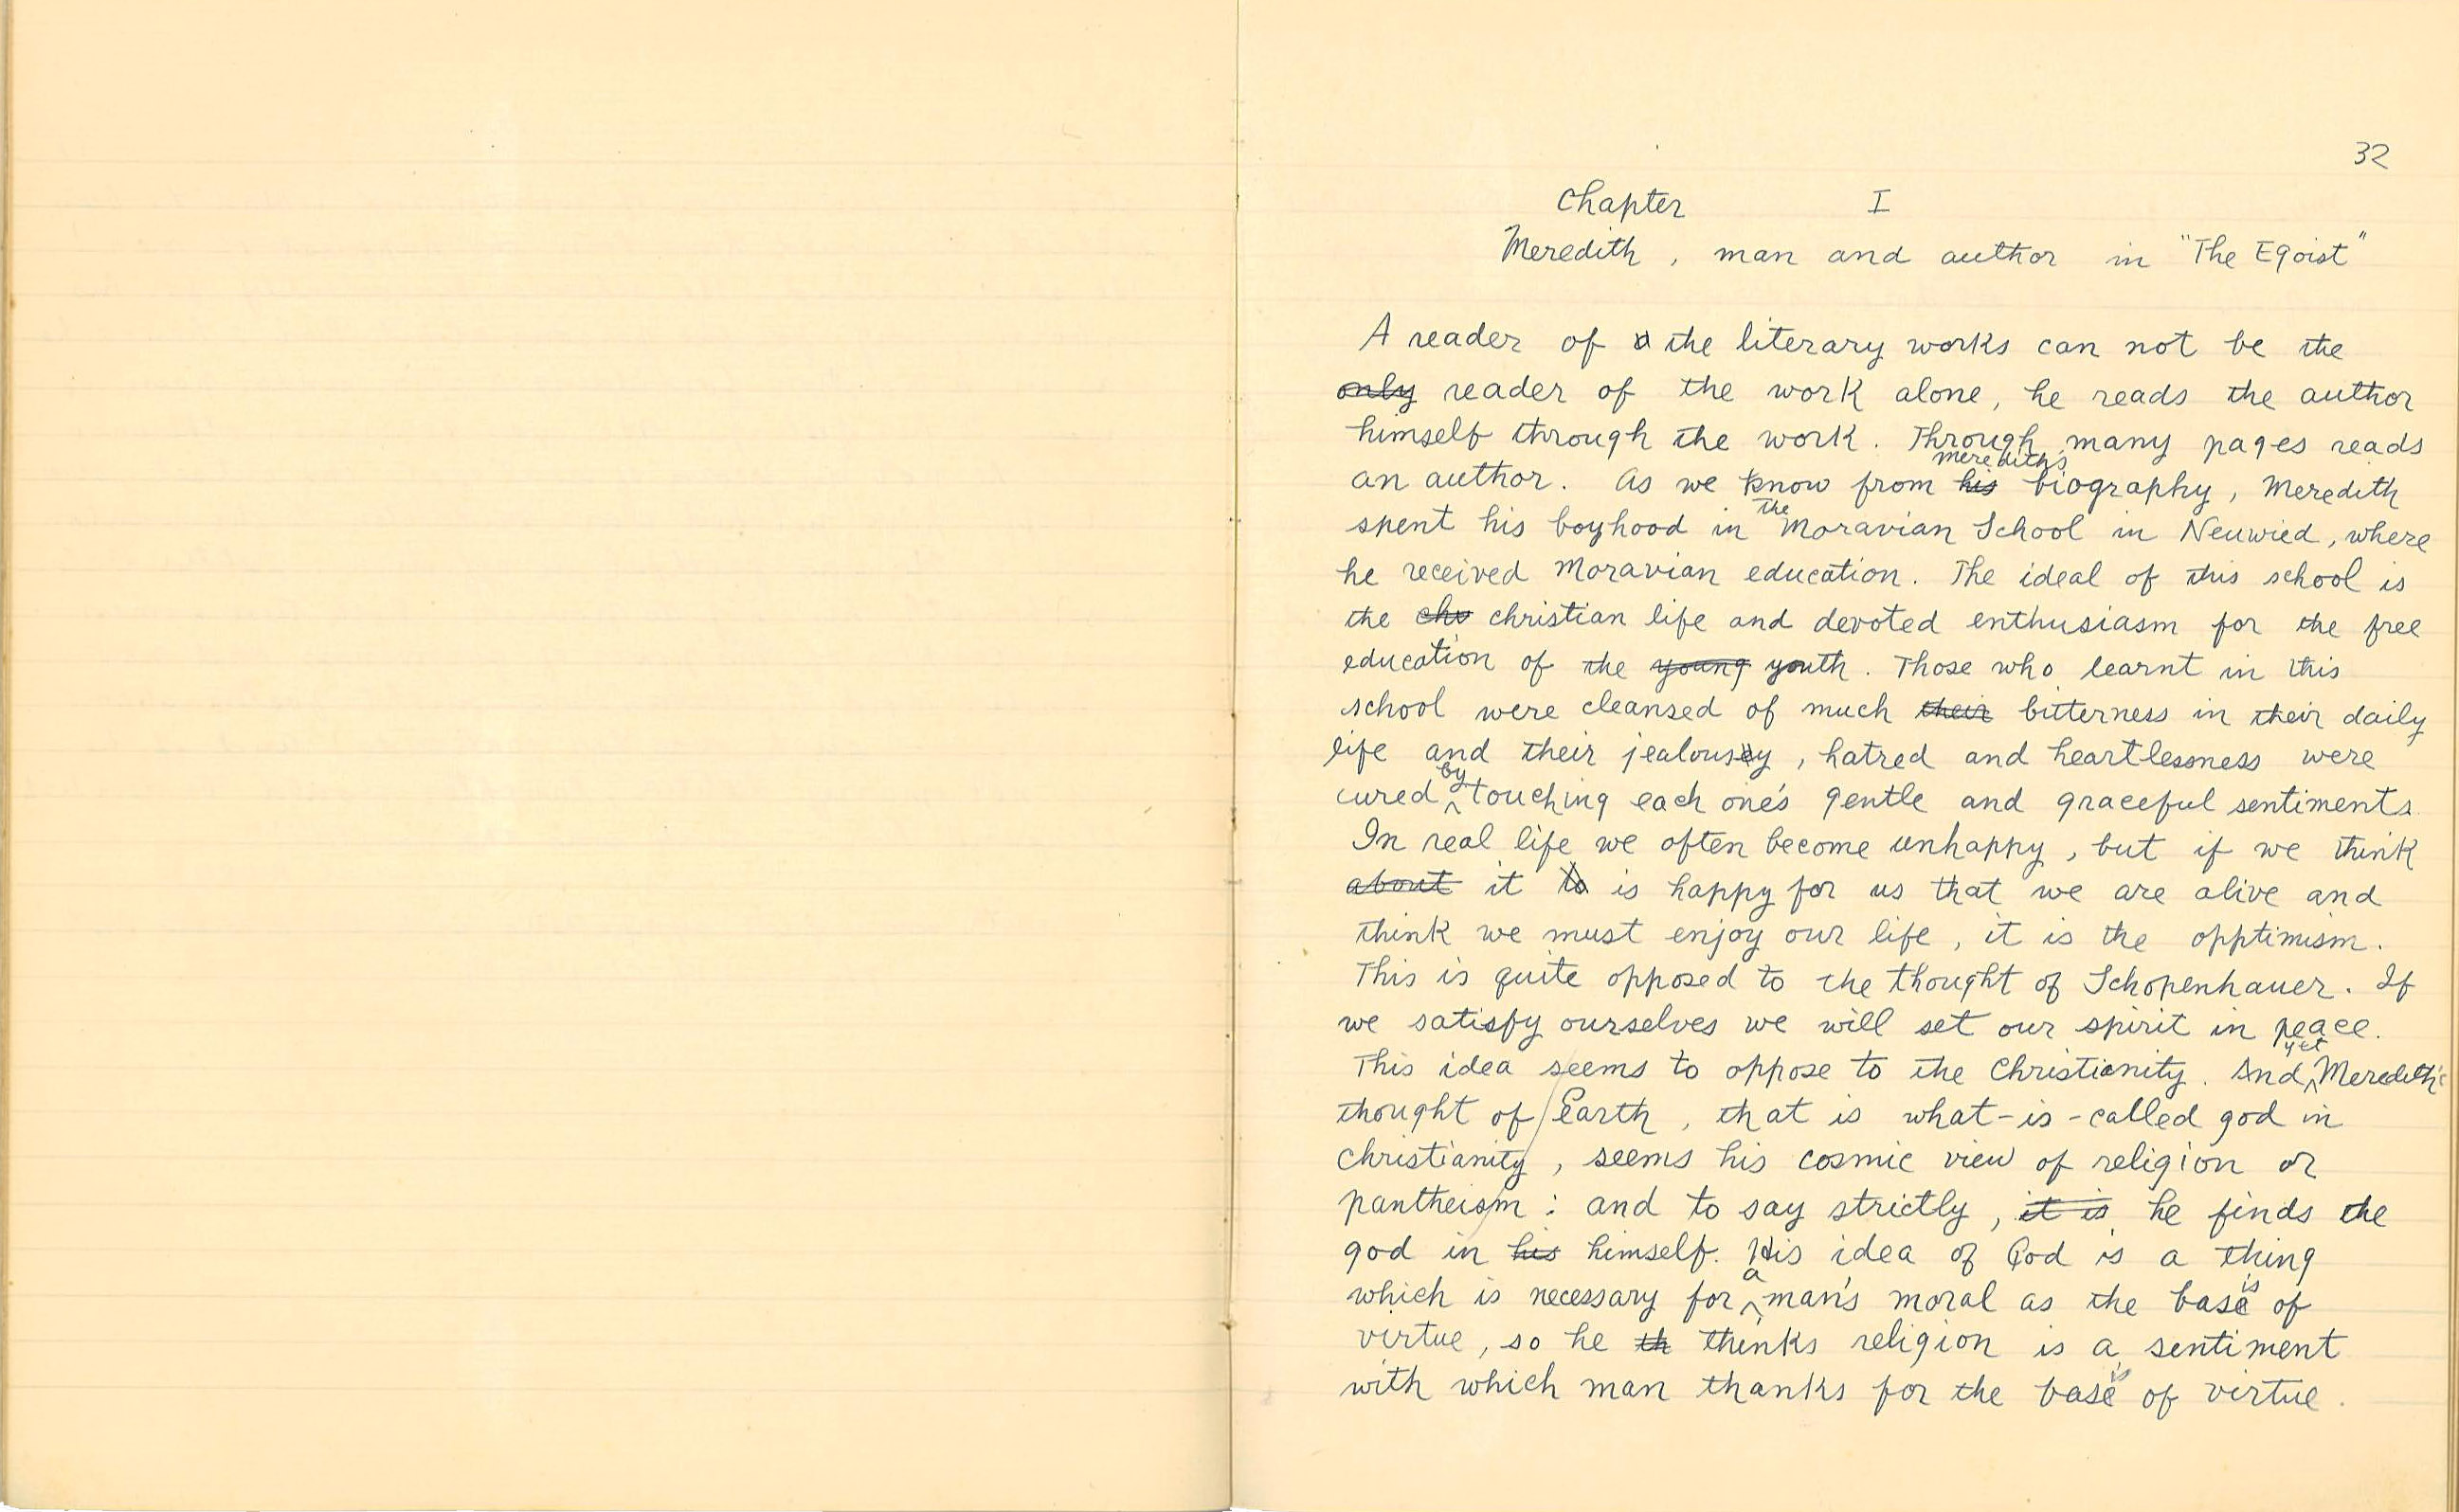 32
Chapter I
Meredith, man and author in "The Egoist"
A reader of a the literary works can not be the
only reader of the work alone, he reads the author
himself through the work. Through many pages reads
meredith's
an author. As we know from his biography, Meredith
the
spent his boyhood in Moravian School in Neuwied, where
he received Moravian education. The ideal of this school is
the chr christian life and devoted enthusiasm for the free
education of the young youth. Those who learnt in this
school were cleansed of much their bitterness in their daily
life and their jealousy, hatred and heartlessness were
by
cured touching each one's gentle and graceful sentiments.
In real life we often become unhappy, but if we think
about it to is happy for us that we are alive and
think we must enjoy our life, it is the opptimism.
This is quite opposed to the thought of Schopenhauer. If
we satisfy ourselves we will set our spirit in peace.
yet
This idea seems to oppose to the Christianity. And Meredith's
thought of Earth, that is what-is-called god in
christianity, seems his cosmic view of religion or
pantheism : and to say strictly, it is he finds the
god in his himself. His idea of God is a thing
a is
which is necessary for man's moral as the base of
virtue, so he th thinks religion is a sentiment
is
with which man thanks for the base of virtue.